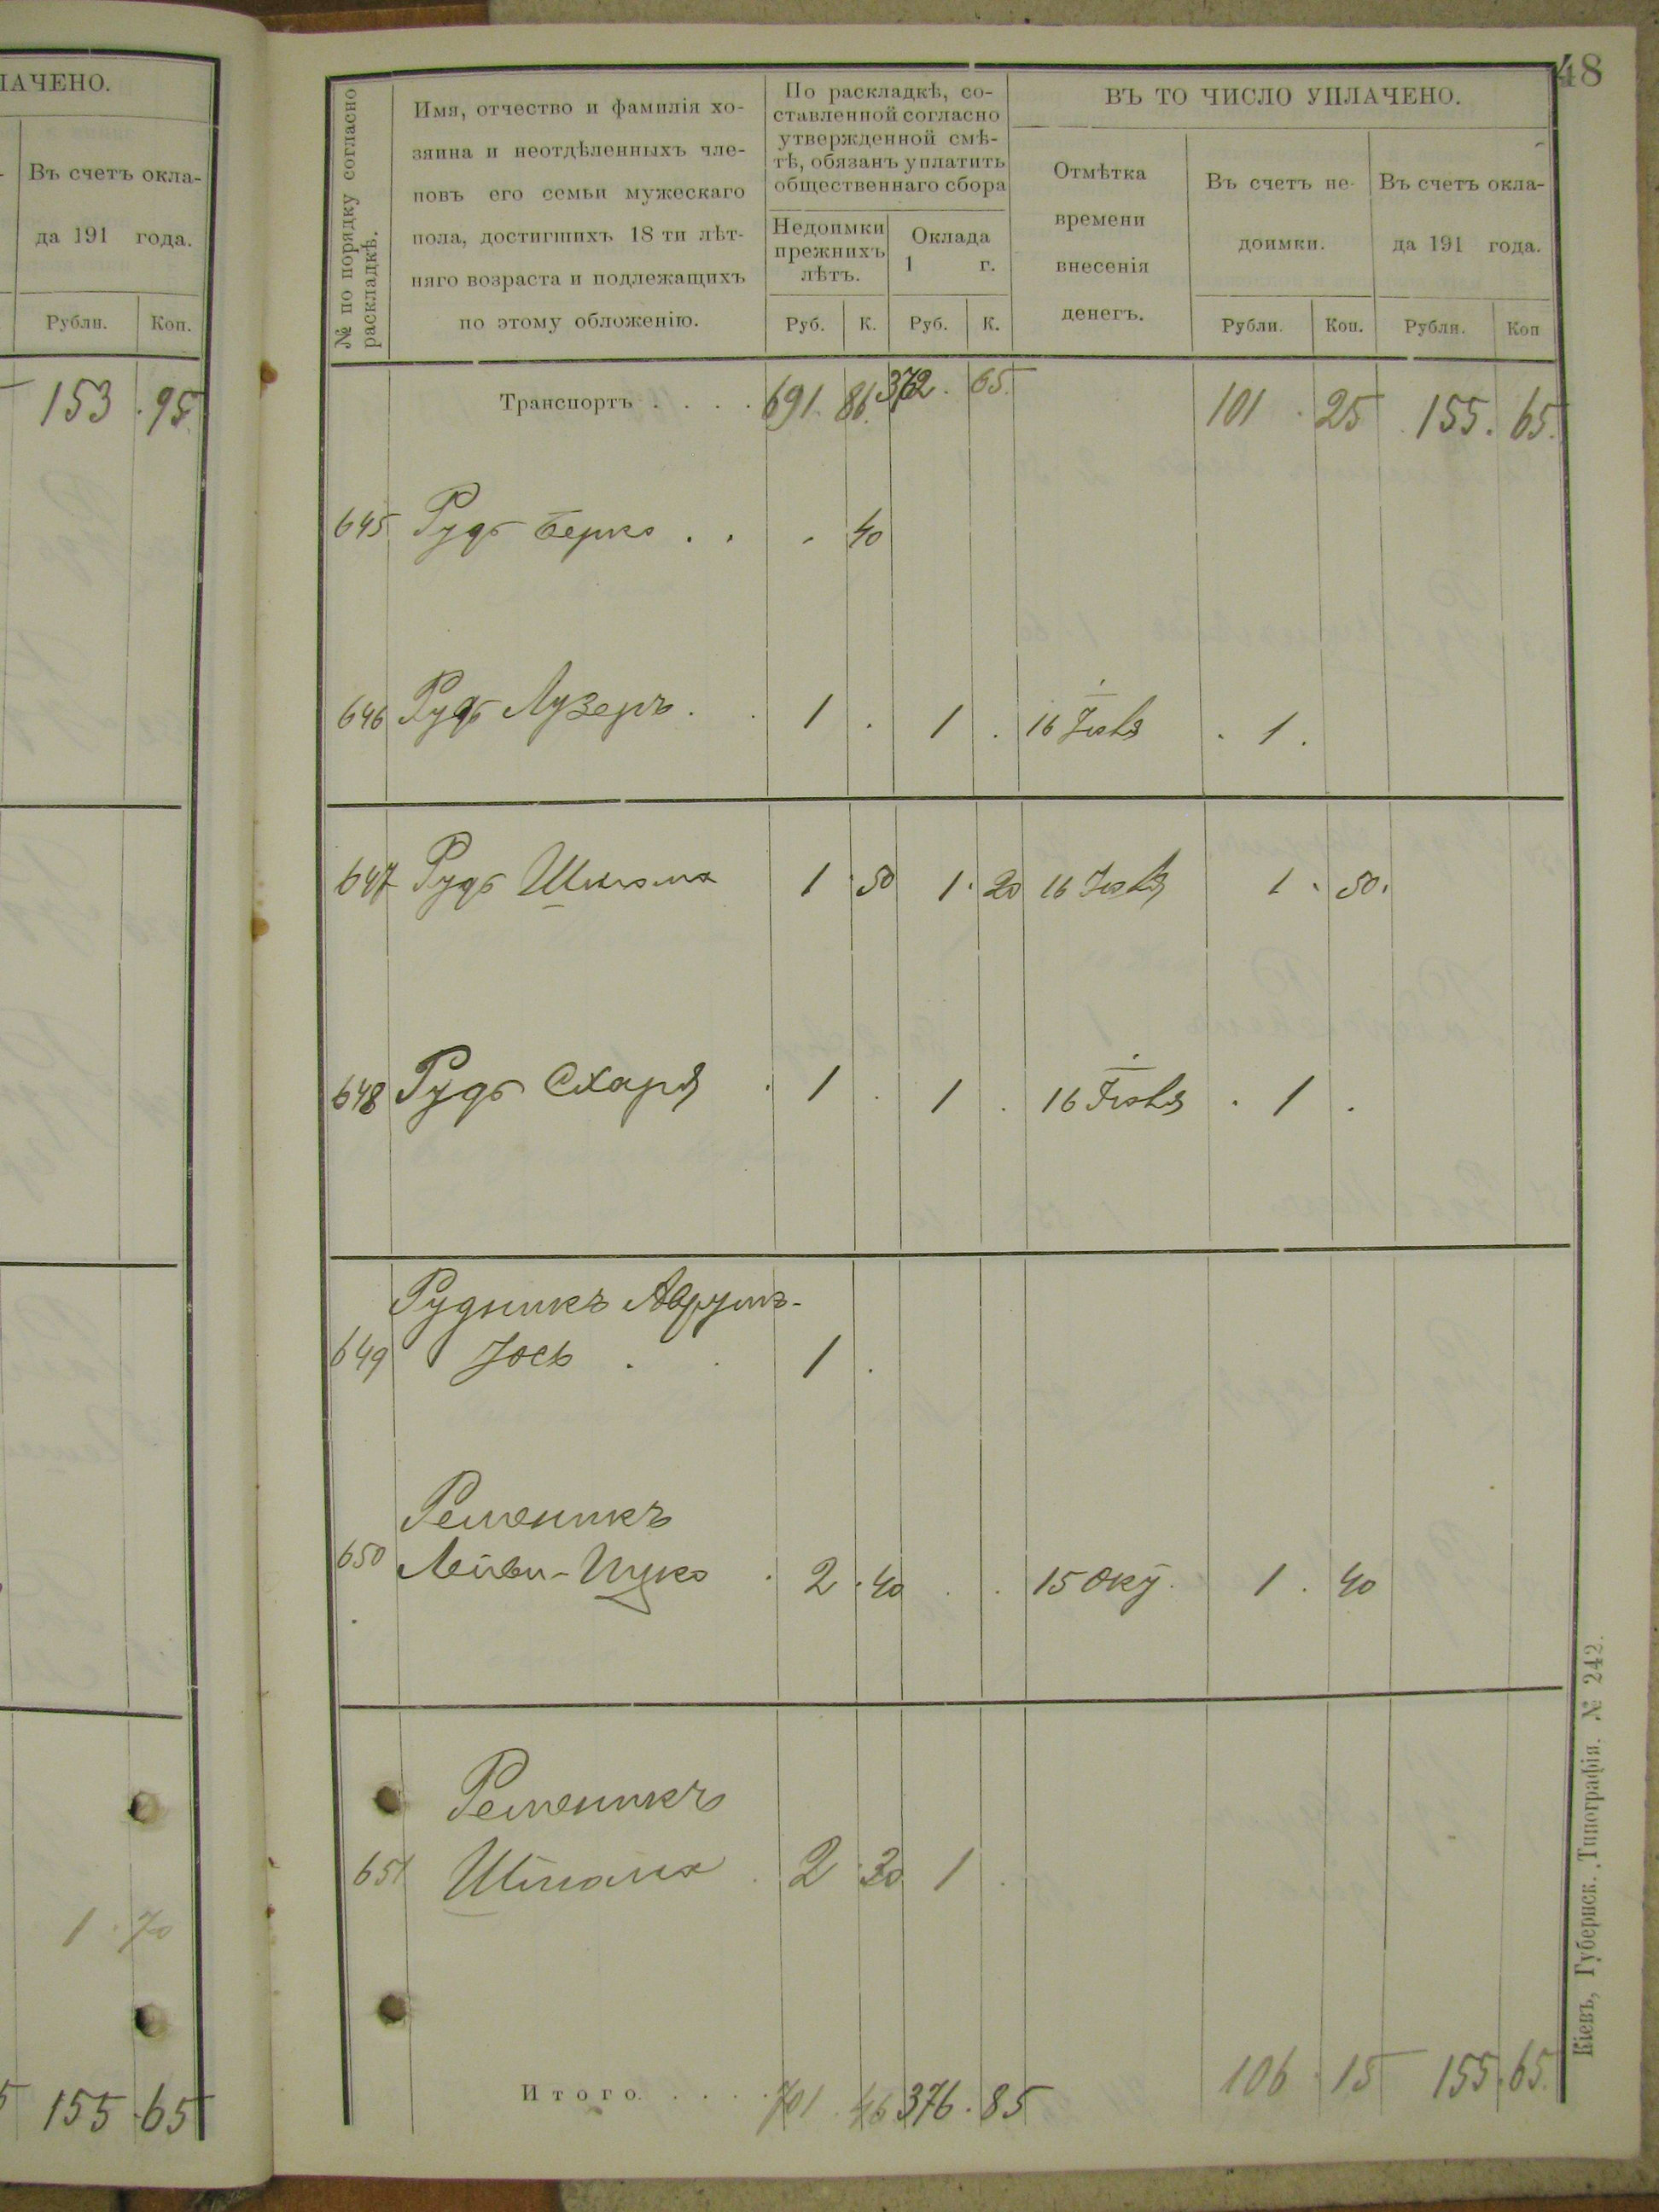 ЛАЧЕНО.
Въ счетъ окла-
да 191 года.
Рубли. Коп.
153 . 95
1 . 70
155 . 65
48
№ по порядку согласно
раскладкѣ.
Имя, отчество и фамилія хо-
зяина и неотдѣленныхъ чле-
новъ его семьи мужескаго
пола, достигшихъ 18 ти лѣт-
няго возраста и подлежащихъ
по этому обложенію.
По раскладкѣ, со-
ставленной согласно
утвержденной смѣ-
тѣ, обязанъ уплатить
общественнаго сбора
Недоимки
прежнихъ
лѣтъ.
Оклада
1 г.
Руб. К. Руб. К.
ВЪ ТО ЧИСЛО УПЛАЧЕНО.
Отмѣтка
времени
внесенія
денегъ.
Въ счетъ не-
доимки.
Въ счетъ окла-
да 191 года.
Рубли. Коп. Рубли. Коп
Транспортъ . . . . 691. 86. 372. 65. 101 . 25 155. 65.
645 Рудъ Берко . . - 40
646 Рудъ Лузеръ . . 1 . 1 . 16 . 1 .
647 Рудъ Шлиома 1 . 50 1 . 20 16 1 . 50.
648 Рудъ Схарія . 1 . 1 . 16 . 1 .
Рудникъ Аврумъ-
649 Іось . . 1 .
Ременикъ
650 Лейви-Ицко . 2 . 40 . . 15 Окт. 1 . 40
Ременикъ
651 Шліома . 2 . 20 1 .
Итого. . . . . 701 . 46 376 . 85 106 . 15 155 . 65.
Кіевъ, Губернск. Типографія. № 242.